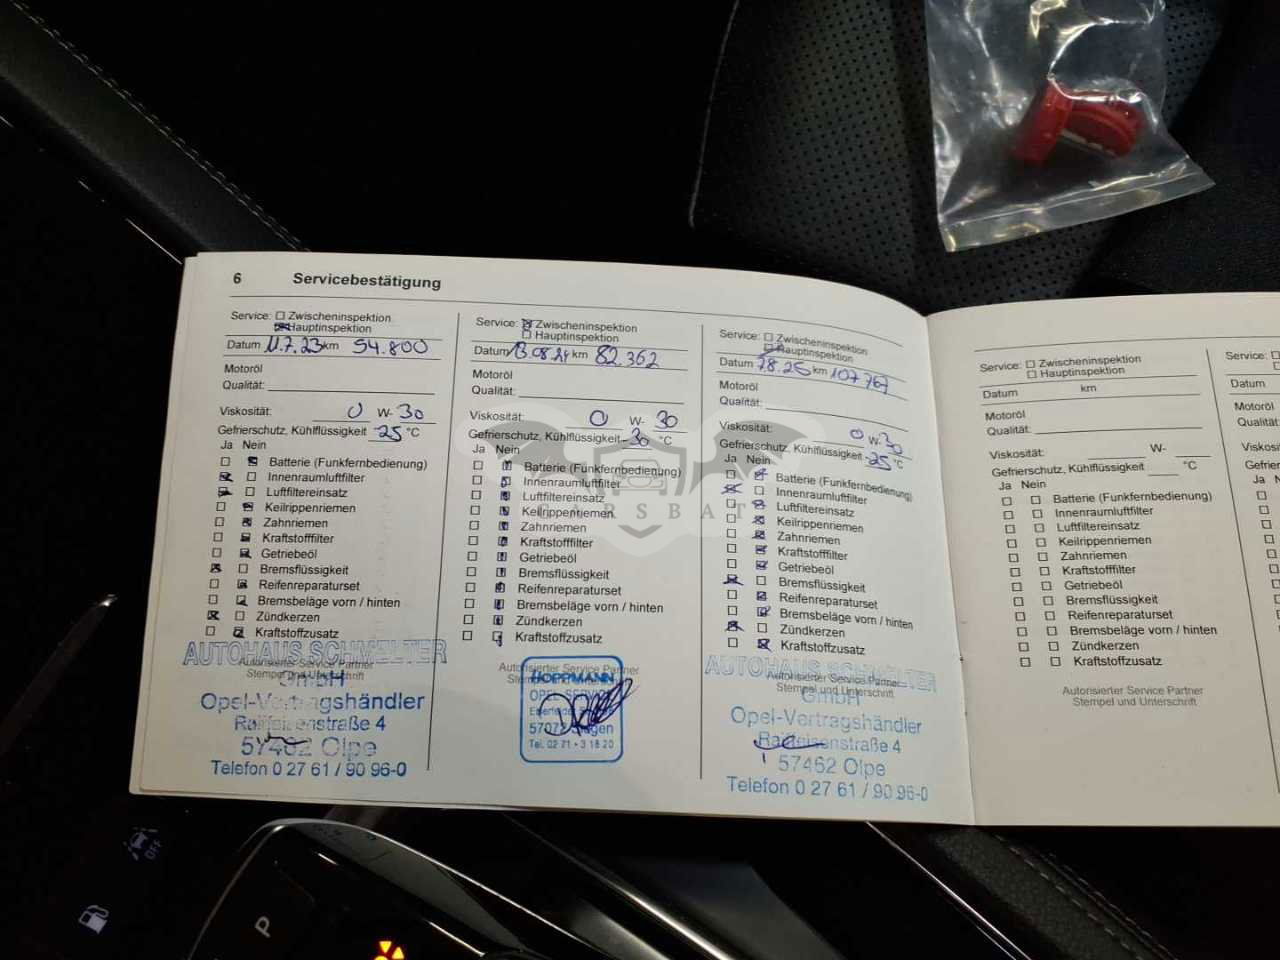 6 Servicebestätigung
Service: Zwischeninspektion
Hauptinspektion
Datum 11.7.23 km 54.800
Motoröl
Qualität:
Viskosität: 0 W- 30
Gefrierschutz, Kühlflüssigkeit -25 °C
Ja Nein
Batterie (Funkfernbedienung)
Innenraumluftfilter
Luftfiltereinsatz
Keilrippenriemen
Zahnriemen
Kraftstofffilter
Getriebeöl
Bremsflüssigkeit
Reifenreparaturset
Bremsbeläge vorn / hinten
Zündkerzen
Kraftstoffzusatz
Autorisierter Service Partner
Stempel und Unterschrift
AUTOHAUS SCHMELTER
GmbH
Opel-Vertragshändler
Raiffeisenstraße 4
57462 Olpe
Telefon 0 27 61 / 90 96-0
Service: Zwischeninspektion
Hauptinspektion
Datum 13.08.24 km 82.362
Motoröl
Qualität:
Viskosität: 0 W- 30
Gefrierschutz, Kühlflüssigkeit -30 °C
Ja Nein
Batterie (Funkfernbedienung)
Innenraumluftfilter
Luftfiltereinsatz
Keilrippenriemen
Zahnriemen
Kraftstofffilter
Getriebeöl
Bremsflüssigkeit
Reifenreparaturset
Bremsbeläge vorn / hinten
Zündkerzen
Kraftstoffzusatz
Autorisierter Service Partner
HOPPMANN
OPEL SERVICE
57072 Siegen
Tel. 02 71 • 3 18 20
Service: Zwischeninspektion
Hauptinspektion
Datum 7.8.25 km 107 767
Motoröl
Qualität:
Viskosität: 0 W- 30
Gefrierschutz, Kühlflüssigkeit -25 °C
Ja Nein
Batterie (Funkfernbedienung)
Innenraumluftfilter
Luftfiltereinsatz
Keilrippenriemen
Zahnriemen
Kraftstofffilter
Getriebeöl
Bremsflüssigkeit
Reifenreparaturset
Bremsbeläge vorn / hinten
Zündkerzen
Kraftstoffzusatz
Autorisierter Service Partner
Stempel und Unterschrift
AUTOHAUS SCHMELTER
GmbH
Opel-Vertragshändler
Raiffeisenstraße 4
57462 Olpe
Telefon 0 27 61 / 90 96-0
Service: Zwischeninspektion
Hauptinspektion
Datum km
Motoröl
Qualität:
Viskosität: W-
Gefrierschutz, Kühlflüssigkeit °C
Ja Nein
Batterie (Funkfernbedienung)
Innenraumluftfilter
Luftfiltereinsatz
Keilrippenriemen
Zahnriemen
Kraftstofffilter
Getriebeöl
Bremsflüssigkeit
Reifenreparaturset
Bremsbeläge vorn / hinten
Zündkerzen
Kraftstoffzusatz
Autorisierter Service Partner
Stempel und Unterschrift
Service:
Datum
Motoröl
Ja
CARSBAT
OFF
P